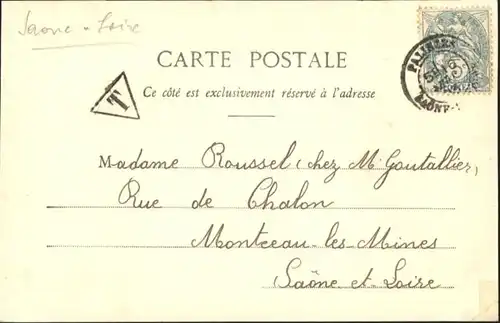 Saone-Loire
CARTE POSTALE
T
Ce côté est exclusivement réservé à l'adresse
Madame Roussel (chez Mr Goutallier)
Rue de Chalon
Montceau-les-Mines
Saône-et-Loire